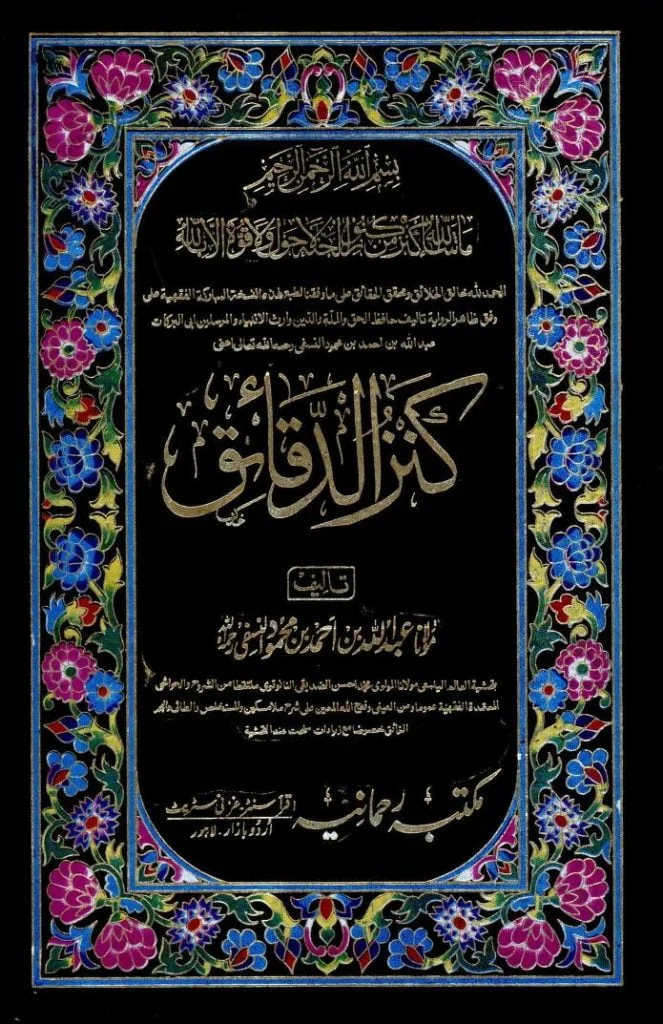 بسم الله الرحمن الرحيم
ماشاء الله كنز من كنوز الجنة لاحول ولا قوة الا بالله
الحمد لله خالق الخلائق ومحقق الحقائق على ما وفقنا لطبع هذه النسخة المباركة الفقهية على
وفق ظاهر الرواية تاليف حافظ الحق والملة والدين وارث الانبياء والمرسلين ابى البركات
عبد الله بن احمد بن محمود النسفى رحمه الله تعالى اعنى
كنز الدقائق
تاليف
مولانا عبد الله بن احمد بن محمود النسفي
بتحشية العالم الیلمعی مولانا المولوى محمد احسن الصديقى النانوتوى ملتقطا من الشروح والحواشى
المعتمدة الفقهية عموما ومن العينى وفتح الله المعين على شرح ملا مسكين والمستخلص والطائى والبحر
الرائق خصوصا مع زيادات سخت عند التحشية
مکتبہ رحمانیہ
اقرأ سنٹر، غزنی سٹریٹ
اُردو بازار۔ لاہور